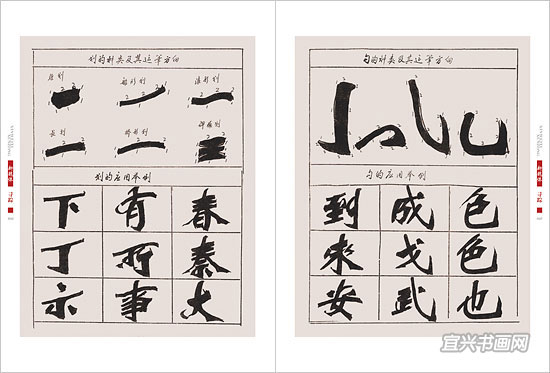 划的种类及其运笔方向
短划 船形划 浪形划
长划 桥形划
划的应用举例
下 有 春
丁 所 秦
示 事 大
勾的种类及其运笔方向
勾的应用举例
到 成 色
來 戈 色
安 武 也
宜兴书画网